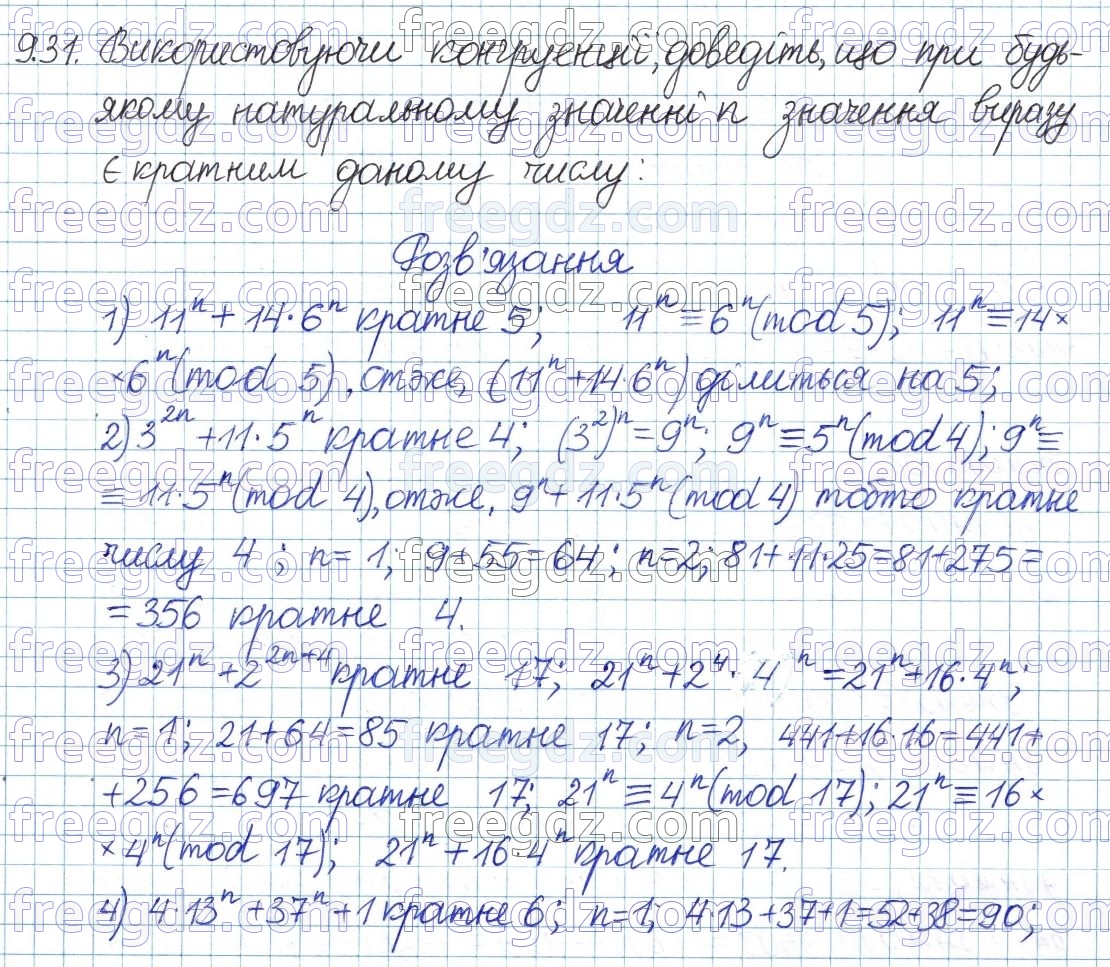 9.31. Використовуючи конгруенції, доведіть, що при будь-
якому натуральному значенні n значення виразу
є кратним даному числу:
Розв'язання
1) 11ⁿ + 14·6ⁿ кратне 5; 11ⁿ ≡ 6ⁿ (mod 5); 11ⁿ ≡ 14×
×6ⁿ (mod 5), отже, (11ⁿ + 14·6ⁿ) ділиться на 5;
2) 3²ⁿ + 11·5ⁿ кратне 4; (3²)ⁿ = 9ⁿ; 9ⁿ ≡ 5ⁿ (mod 4); 9ⁿ ≡
≡ 11·5ⁿ (mod 4), отже, 9ⁿ + 11·5ⁿ (mod 4) тобто кратне
числу 4; n = 1; 9 + 55 = 64; n = 2; 81 + 11·25 = 81 + 275 =
= 356 кратне 4.
3) 21ⁿ + 2²ⁿ⁺⁴ кратне 17; 21ⁿ + 2⁴·4ⁿ = 21ⁿ + 16·4ⁿ;
n = 1; 21 + 64 = 85 кратне 17; n = 2, 441 + 16·16 = 441 +
+ 256 = 697 кратне 17; 21ⁿ ≡ 4ⁿ (mod 17); 21ⁿ ≡ 16×
×4ⁿ (mod 17); 21ⁿ + 16·4ⁿ кратне 17.
4) 4·13ⁿ + 37ⁿ + 1 кратне 6; n = 1; 4·13 + 37 + 1 = 52 + 38 = 90;
freegdz.com